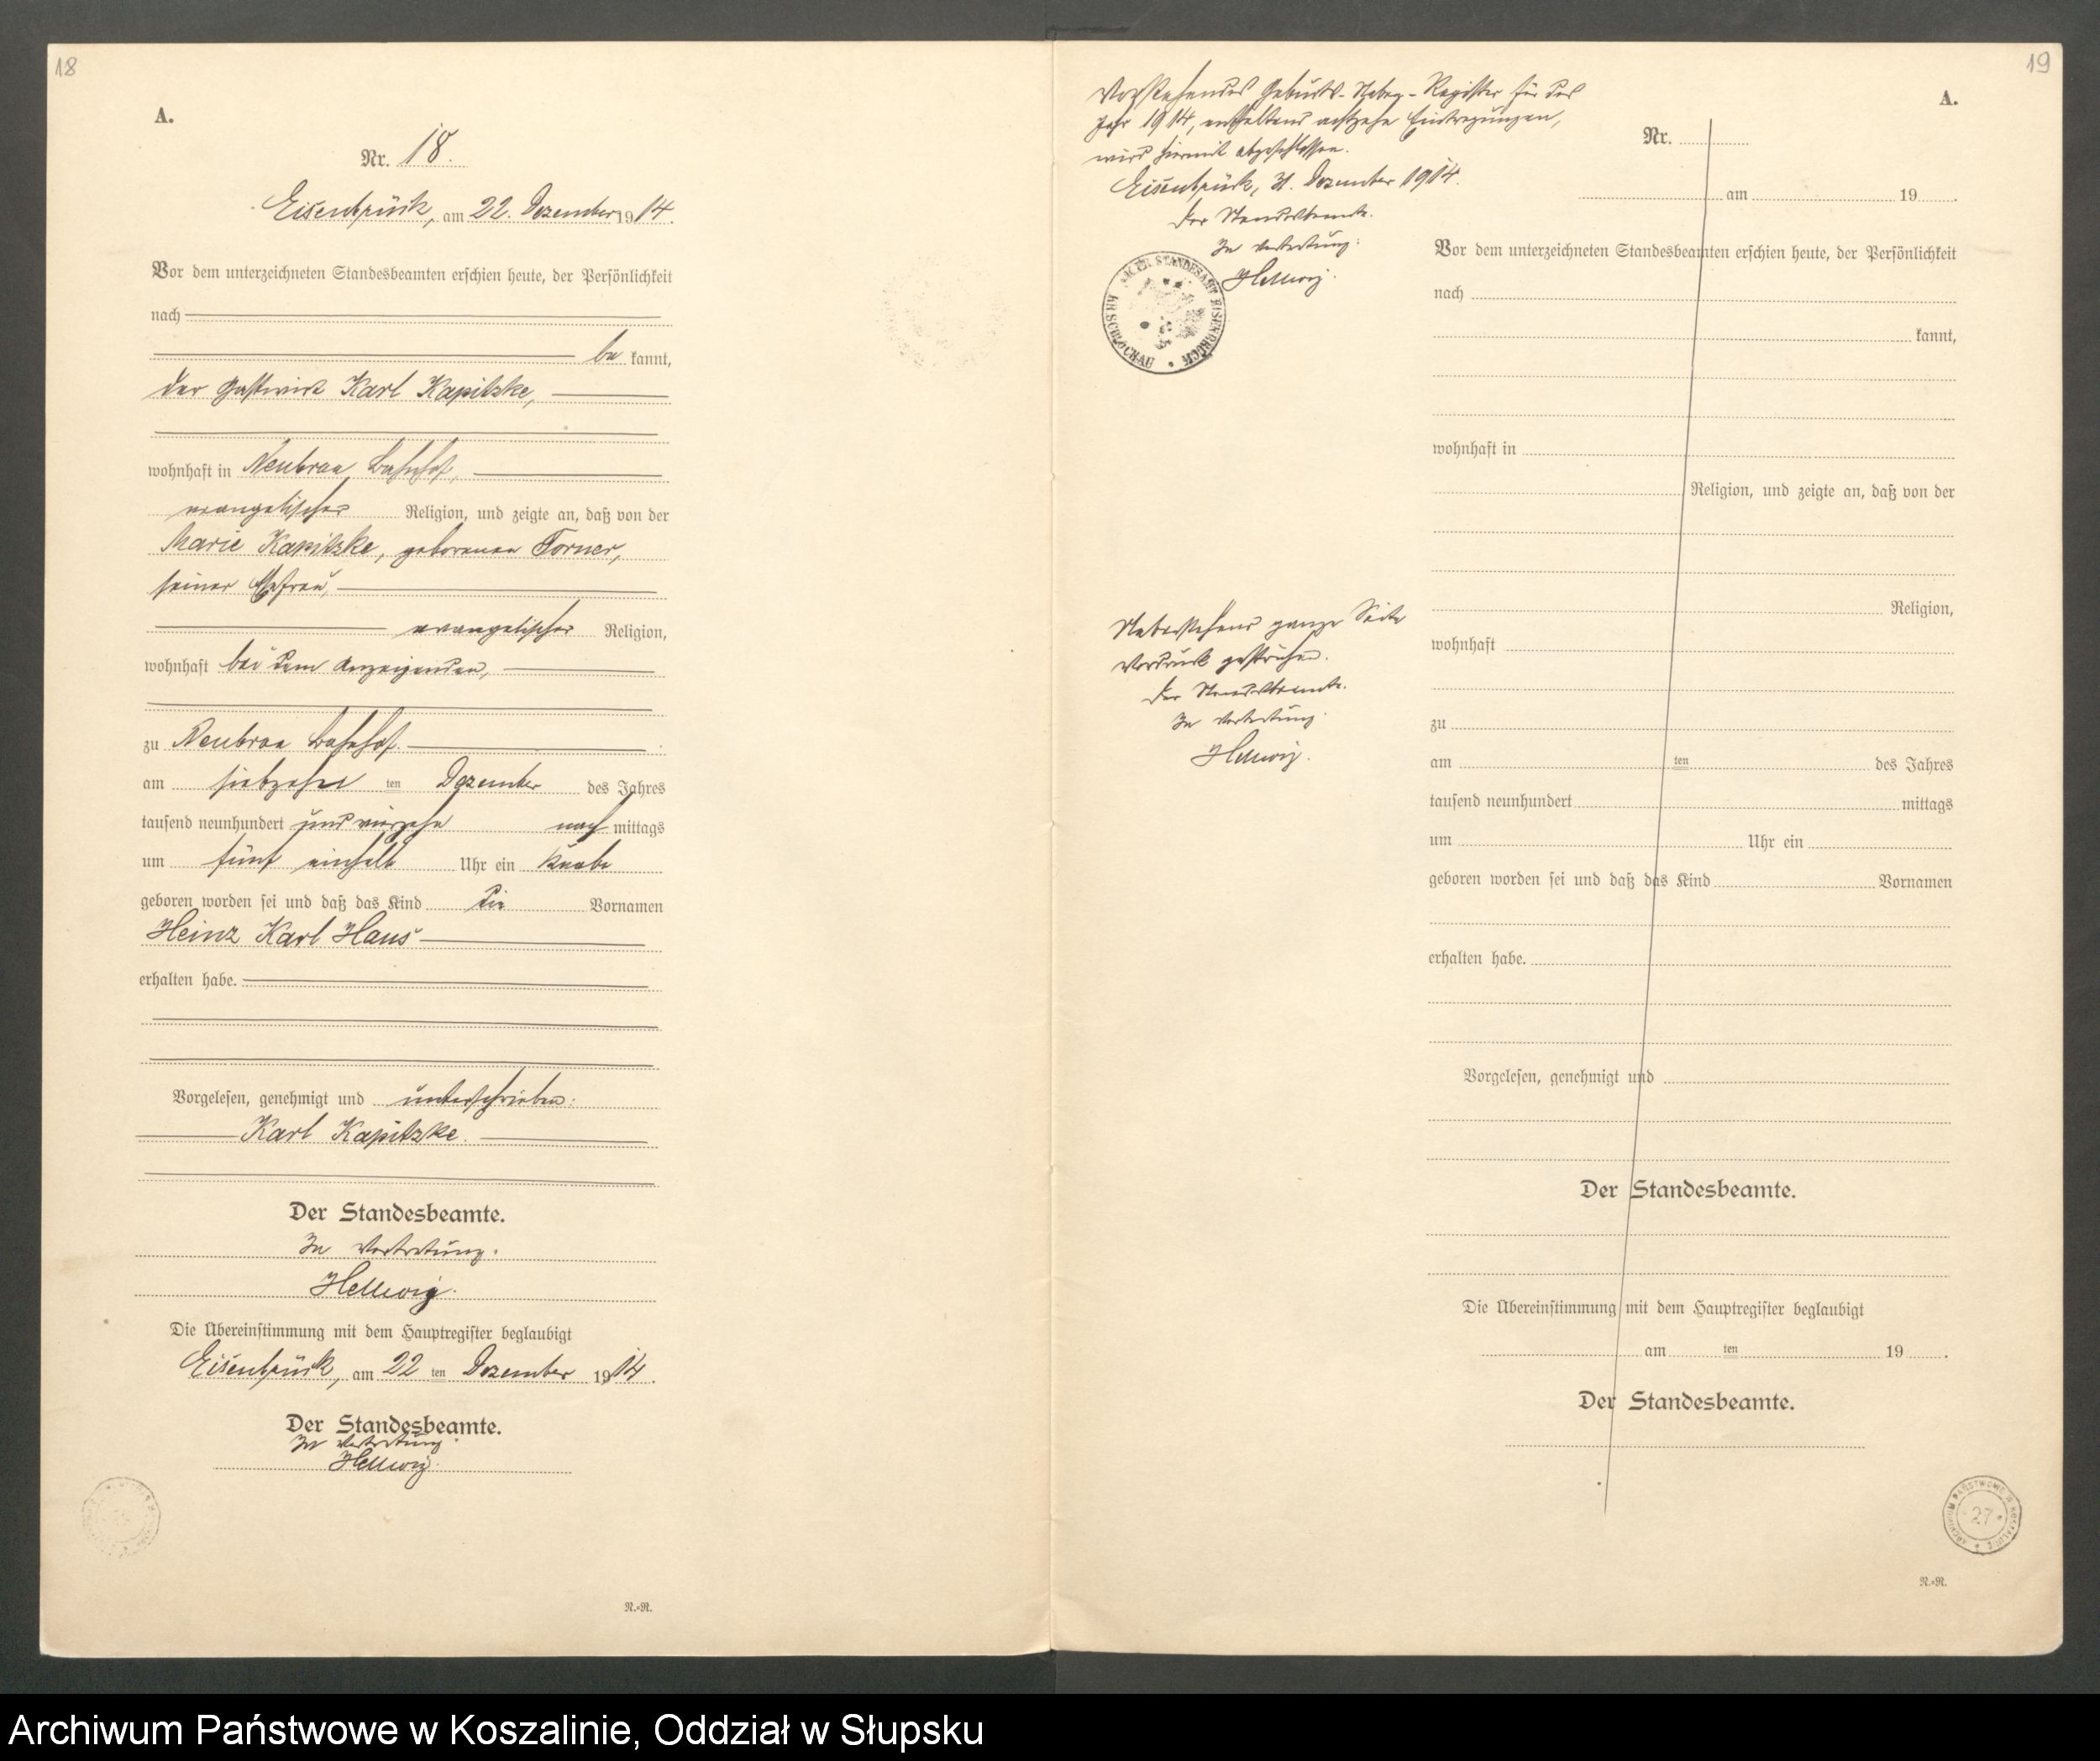 18
A.
Nr. 18.
Eisenbrück, am 22. Dezember 1914.
Vor dem unterzeichneten Standesbeamten erschien heute, der Persönlichkeit
nach
be kannt,
der Gastwirt Karl Kapitzke,
wohnhaft in Neubraa Bahnhof,
evangelischer Religion, und zeigte an, daß von der
Marie Kapitzke, geborenen Torner,
seiner Ehefrau,
evangelischer Religion,
wohnhaft bei dem Anzeigenden,
zu Neubraa Bahnhof.
am siebzehn ten Dezember des Jahres
tausend neunhundert und vierzehn nach mittags
um fünf einhalb Uhr ein Knabe
geboren worden sei und daß das Kind die Vornamen
Heinz Karl Hans
erhalten habe.
Vorgelesen, genehmigt und unterschrieben:
Karl Kapitzke.
Der Standesbeamte.
In Vertretung.
Hellwig.
Die Übereinstimmung mit dem Hauptregister beglaubigt
Eisenbrück, am 22 ten Dezember 1914.
Der Standesbeamte.
In Vertretung.
Hellwig.
R.=R.
19
A.
Vorstehendes Geburts-Neben-Register für das
Jahr 1914, enthaltend achtzehn Eintragungen,
wird hiermit abgeschlossen.
Eisenbrück, 31. Dezember 1914.
Der Standesbeamte.
In Vertretung:
Hellwig.
STANDESAMT EISENBRÜCK
KR. SCHLOCHAU
Nebenstehend ganze Seite
Vordruck gestrichen.
Der Standesbeamte.
In Vertretung.
Hellwig.
Nr.
am 19 .
Vor dem unterzeichneten Standesbeamten erschien heute, der Persönlichkeit
nach
kannt,
wohnhaft in
Religion, und zeigte an, daß von der
Religion,
wohnhaft
zu
am ten des Jahres
tausend neunhundert mittags
um Uhr ein
geboren worden sei und daß das Kind Vornamen
erhalten habe.
Vorgelesen, genehmigt und
Der Standesbeamte.
Die Übereinstimmung mit dem Hauptregister beglaubigt
am ten 19 .
Der Standesbeamte.
ARCHIWUM PAŃSTWOWE W KOSZALINIE
27
R.=R.
Archiwum Państwowe w Koszalinie, Oddział w Słupsku